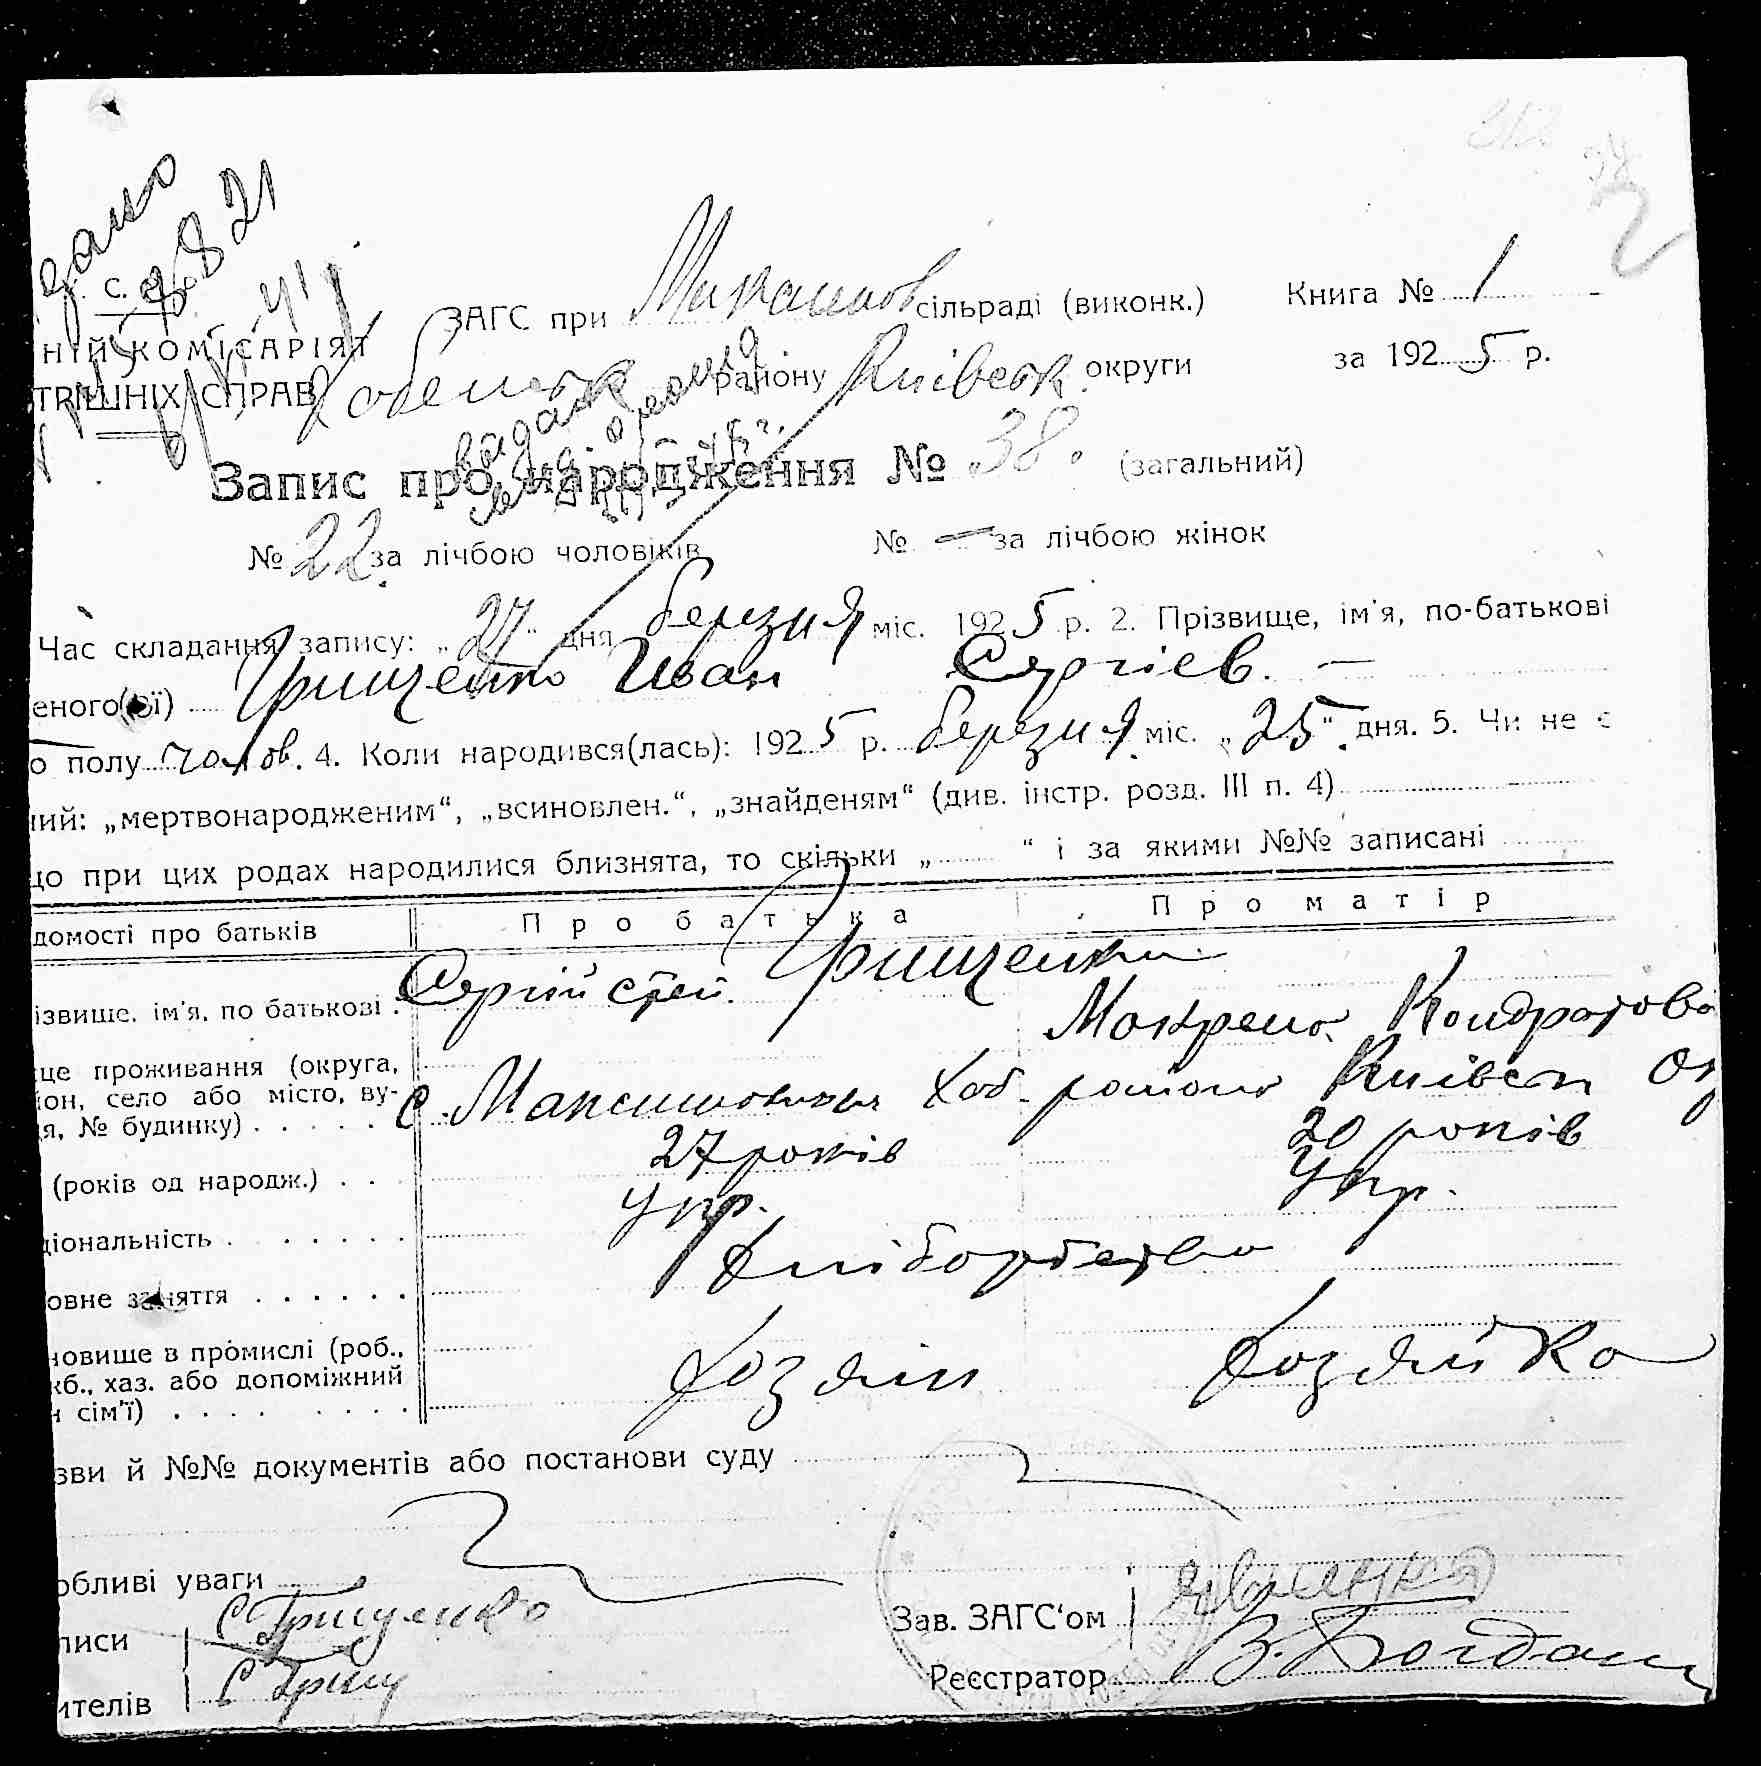 С.
ЗАГС при сільраді (виконк.) Книга № 1
НІЙ КОМІСАРІЯТ
ТРІШНІХ СПРАВ
району Київськ округи за 1925 р.
Запис про народження № 38. (загальний)
№ 22 за лічбою чоловіків № — за лічбою жінок
Час складання запису: „27“ дня березня міс. 1925 р. 2. Прізвище, ім'я, по-батькові
еного(ої) Грищенко Иван Сергіев. —
о полу чолов. 4. Коли народився(лась): 1925 р. березня міс. „25“ дня. 5. Чи не є
ний: „мертвонародженим“, „всиновлен.“, „знайденям“ (див. інстр. розд. III п. 4)
що при цих родах народилися близнята, то скільки „ “ і за якими №№ записані
домості про батьків Про батька Про матір
ізвище, ім'я, по батькові Сергій Степ. Грищенки
Мокрена Кондратова
це проживання (округа,
он, село або місто, ву-
я, № будинку) с. Максимовичи Хаб. району Київськ ок
(років од народж.) 27 років 20 років
ціональність Укр. Укр.
овне заняття Хліборобство
новище в промислі (роб.,
жб., хаз. або допоміжний
н сім'ї) Хозяін Хозяйка
зви й №№ документів або постанови суду
обливі уваги
писи С Грищенко
Зав. ЗАГС'ом
ителів С Грищ
Реєстратор В. Богдан